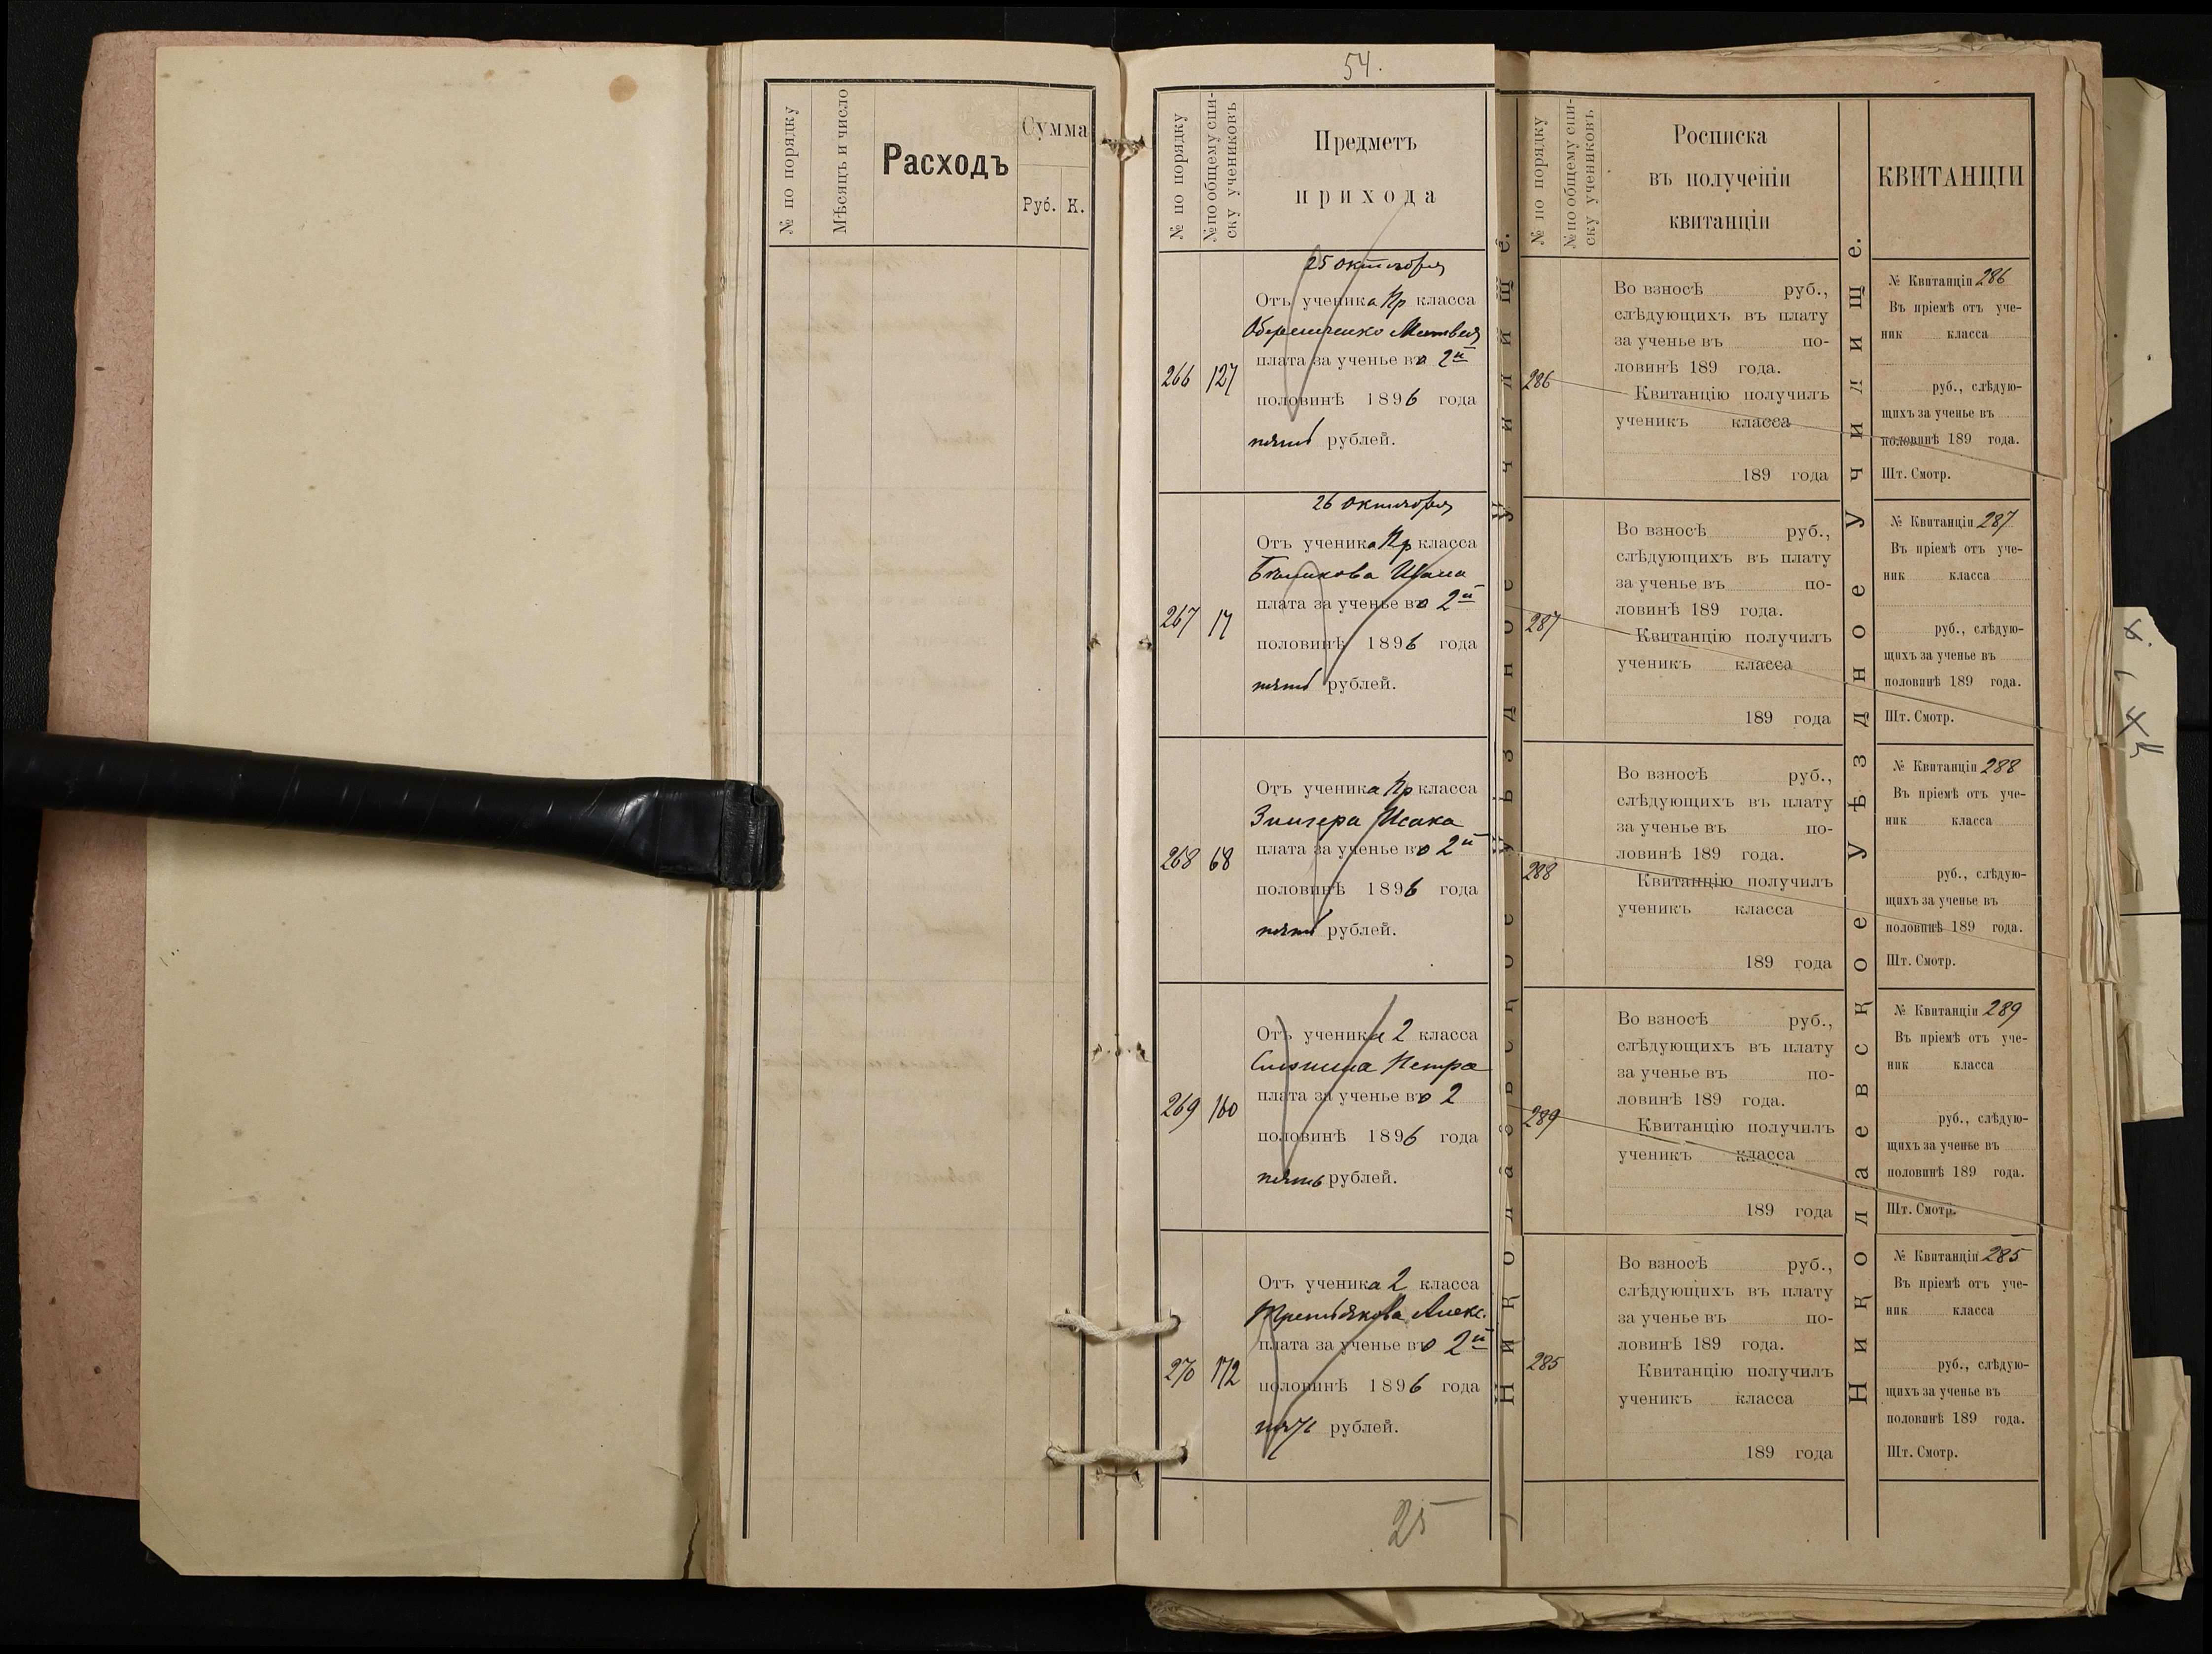 № по порядку
Мѣсяцъ и число
Расходъ
Сумма
Руб. К.
54.
№ по порядку
№ по общему спи-
ску учениковъ
Предметъ
прихода
25 октября
Отъ ученика Пр класса
Матвея
плата за ученье во 2й
266 127
половинѣ 1896 года
пять рублей.
26 октября
Отъ ученика Пр класса
Бѣликова
плата за ученье во 2й
267 17
половинѣ 1896 года
пять рублей.
Отъ ученика Пр класса
Зингера Исака
плата за ученье во 2й
268 68
половинѣ 1896 года
пять рублей.
Отъ ученика 2 класса
Петра
плата за ученье во 2
269 160
половинѣ 1896 года
пять рублей.
Отъ ученика 2 класса
Третьякова Алекс.
плата за ученье во 2й
270 172
половинѣ 1896 года
пять рублей.
25
Николаевское Уѣздное Училище.
№ по порядку
№ по общему спи-
ску учениковъ
Росписка
въ полученіи
квитанціи
Во взносѣ руб.,
слѣдующихъ въ плату
за ученье въ по-
ловинѣ 189 года.
286
Квитанцію получилъ
ученикъ класса
189 года
Во взносѣ руб.,
слѣдующихъ въ плату
за ученье въ по-
ловинѣ 189 года.
287
Квитанцію получилъ
ученикъ класса
189 года
Во взносѣ руб.,
слѣдующихъ въ плату
за ученье въ по-
ловинѣ 189 года.
288
Квитанцію получилъ
ученикъ класса
189 года
Во взносѣ руб.,
слѣдующихъ въ плату
за ученье въ по-
ловинѣ 189 года.
289
Квитанцію получилъ
ученикъ класса
189 года
Во взносѣ руб.,
слѣдующихъ въ плату
за ученье въ по-
ловинѣ 189 года.
285
Квитанцію получилъ
ученикъ класса
189 года
Николаевское Уѣздное Училище.
КВИТАНЦІИ
№ Квитанціи 286
Въ пріемѣ отъ уче-
ник класса
руб., слѣдую-
щихъ за ученье въ
половинѣ 189 года.
Шт. Смотр.
№ Квитанціи 287
Въ пріемѣ отъ уче-
ник класса
руб., слѣдую-
щихъ за ученье въ
половинѣ 189 года.
Шт. Смотр.
№ Квитанціи 288
Въ пріемѣ отъ уче-
ник класса
руб., слѣдую-
щихъ за ученье въ
половинѣ 189 года.
Шт. Смотр.
№ Квитанціи 289
Въ пріемѣ отъ уче-
ник класса
руб., слѣдую-
щихъ за ученье въ
половинѣ 189 года.
Шт. Смотр.
№ Квитанціи 285
Въ пріемѣ отъ уче-
ник класса
руб., слѣдую-
щихъ за ученье въ
половинѣ 189 года.
Шт. Смотр.